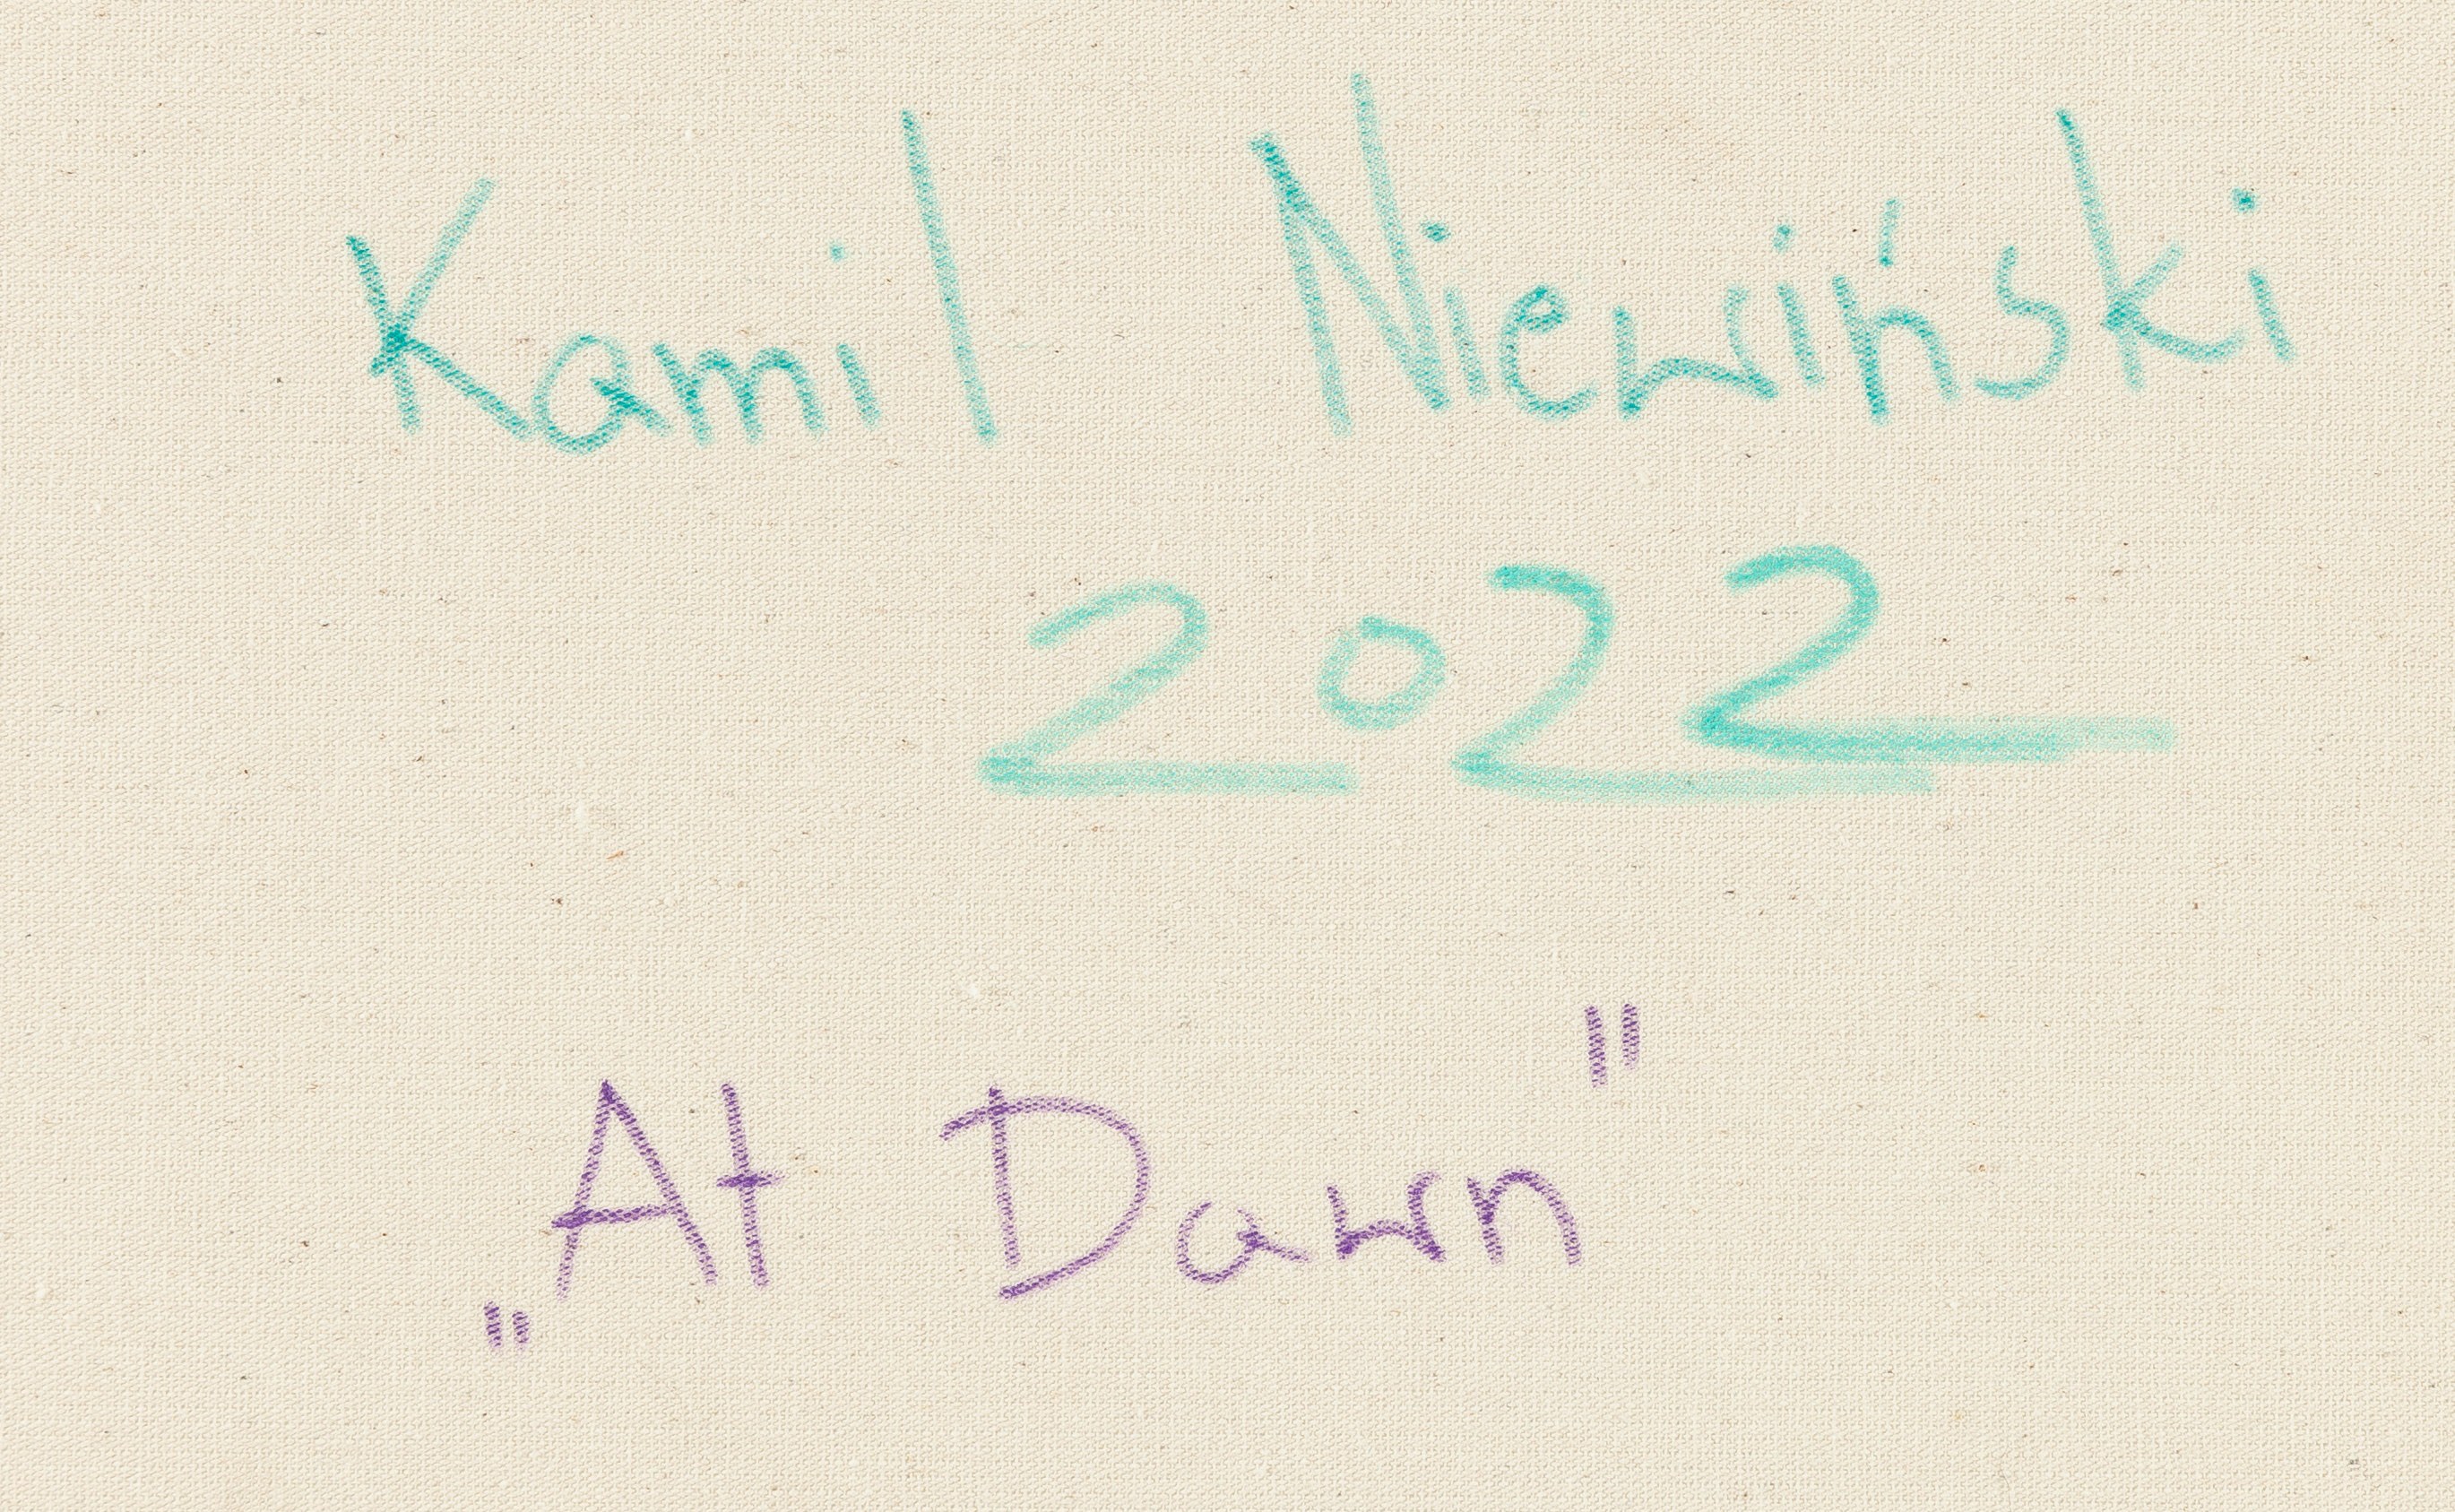 Kamil Niewiński
2022
„At Dawn"